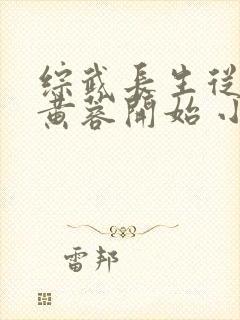 综武长生从
黄蓉開始 小
雷邦